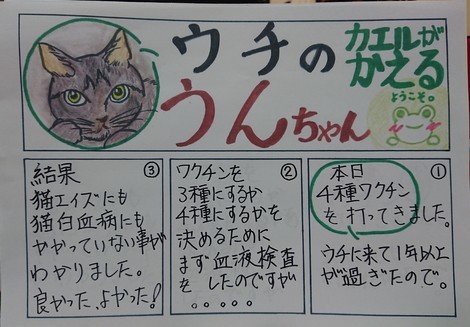 ウチの
うんちゃん
カエルが
かえる
ようこそ。
①
本日
4種ワクチン
を打ってきました。
ウチに来て1年以上
が過ぎたので。
②
ワクチンを
3種にするか
4種にするかを
決めるために
まず血液検査
をしたのですが
。。。。。
③
結果
猫エイズにも
猫白血病にも
かかっていない事が
わかりました。
良かった、よかった!